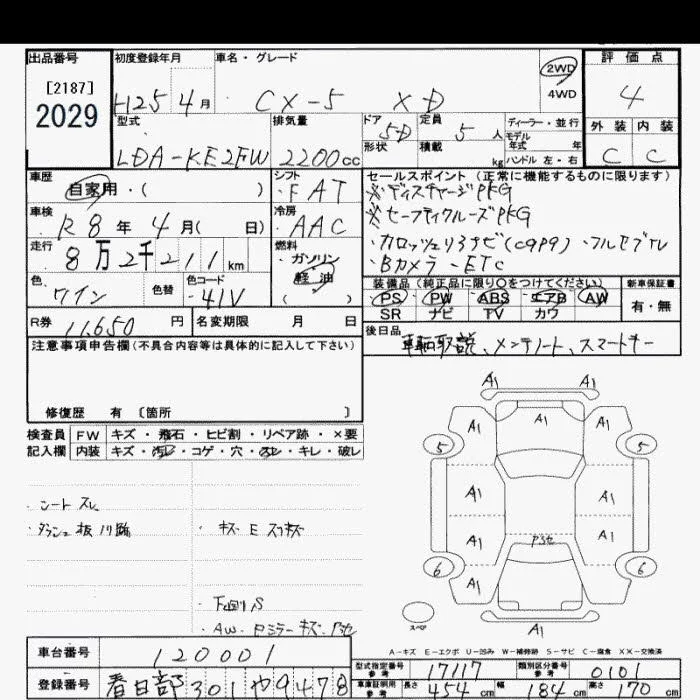 出品番号 初度登録年月 車名・グレード 2WD 評価点
[2187]
2029 H25 4月 CX-5 XD 4WD 4
型式 排気量 ドア 定員 ディーラー・並行 外装 内装
5D 5人 モデル年式 年
LDA-KE2FW 2200cc 形状 積載 kg ハンドル 左・右 C C
車歴 シフト セールスポイント(正常に機能するものに限ります)
自家用・( ) FAT ※ディスチャージPKG
車検 冷房 ※セーフティクルーズPKG
R8年4月( 日) AAC ・カロッツェリアナビ(C9P9)・フルセグTV
走行 燃料 ・Bカメラ・ETC
8万2千211km ガソリン
軽油
( )
色 色替 色コード 装備品(純正品に限り○をつけてください) 新車保証書
ワイン 41V PS PW ABS エアB AW 有・無
SR ナビ TV カワ
R券 11,650円 名変期限 月 日 後日品
車輌取説、メンテノート、スマートキー
注意事項申告欄(不具合内容等は具体的に記入して下さい)
修復歴 有 〔箇所 〕
検査員 FW キズ・飛石・ヒビ割・リペア跡・×要
記入欄 内装 キズ・汚レ・コゲ・穴・スレ・キレ・破レ
・シートスレ
・ダッシュ板
・キズ E スリキズ
・下回りS
・AW. ドミラーキズ.
A1 A1
A1 A1 A1
5 5
A1 A1
A1 A1
6 6
A1 A1
A1
スペア
A-キズ E-エクボ U-凹み W-補修跡 S-サビ C-腐食 XX-交換済
車台番号 120001
型式指定番号 参考 17117 類別区分番号 参考 0101
登録番号 春日部301や9478
車庫証明用 参考 長さ 454cm 幅 184cm 高さ 170cm